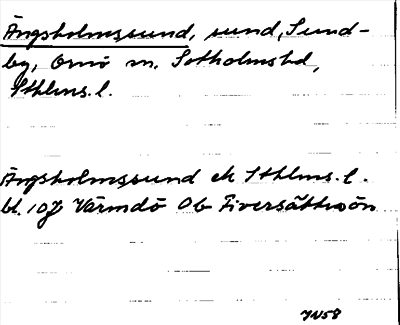 Ängsholmssund, sund, Sund-
by, Ornö sn. Sotholms hd,
Sthlms. l.
Ängsholmssund ek Sthlms. l.
bl. 107 Värmdö Ob Fiversätterön
JN58